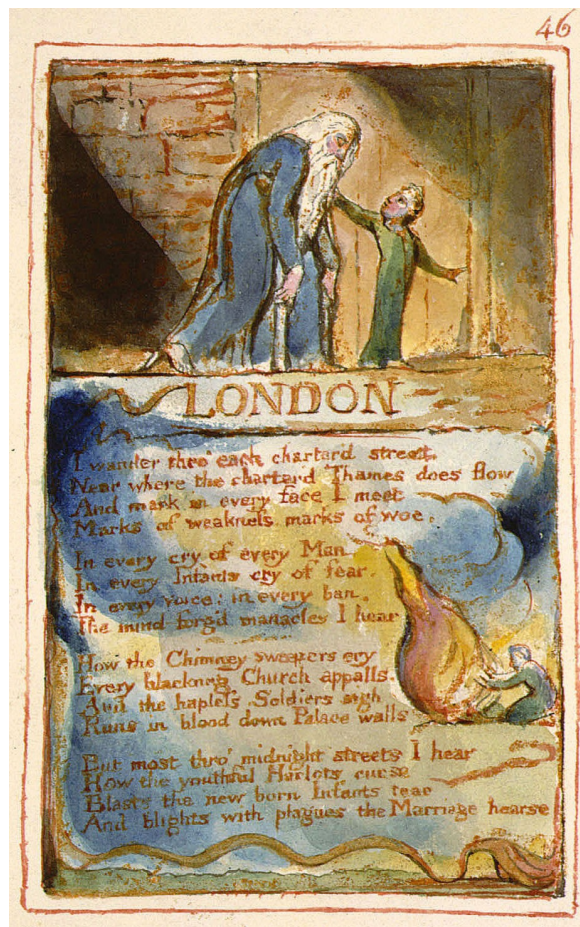 46
LONDON
I wander thro' each charterd street,
Near where the charterd Thames does flow
And mark in every face I meet
Marks of weakness marks of woe.
In every cry of every Man.
In every Infants cry of fear.
In every voice; in every ban.
The mind forg'd manacles I hear
How the Chimney sweepers cry
Every blackning Church appalls.
And the hapless Soldiers sigh
Runs in blood down Palace walls
But most thro' midnight streets I hear
How the youthful Harlots curse
Blasts the new born Infants tear
And blights with plagues the Marriage hearse